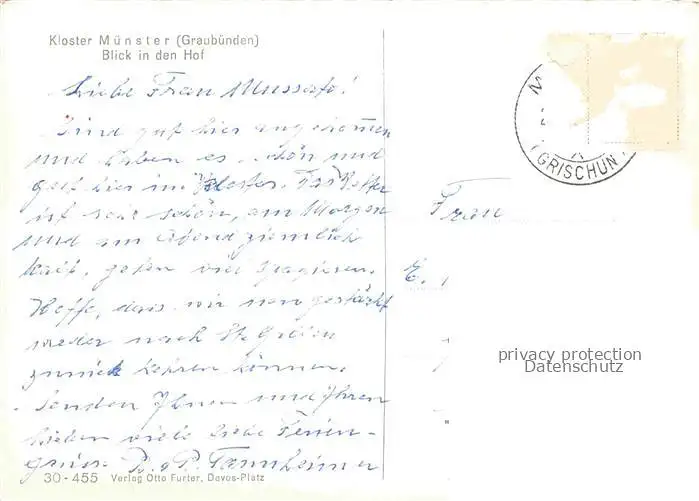 Kloster Münster (Graubünden)
Blick in den Hof
Liebe Frau Mussato!
Sind gut hier angekommen
und haben es schön und
gut hier im Kloster. Das Wetter
ist sehr schön, am Morgen
und am Abend ziemlich
kalt, gehen viel spazieren.
Hoffe, dass wir neu gestärkt
wieder nach St. Gallen
zurück kehren können.
Senden Ihnen und Ihren
lieben viele liebe Ferien-
grüsse P. + P. Tannheimer
30 - 455 Verlag Otto Furter, Davos-Platz
M
GRISCHUN
Frau
E.
privacy protection
Datenschutz